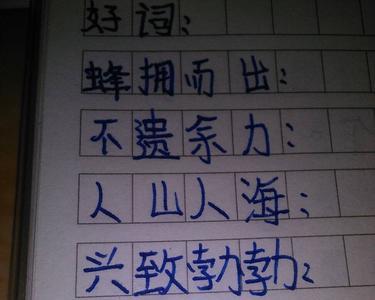 好词:
蜂拥而出:
不遗余力:
人山人海:
兴致勃勃: